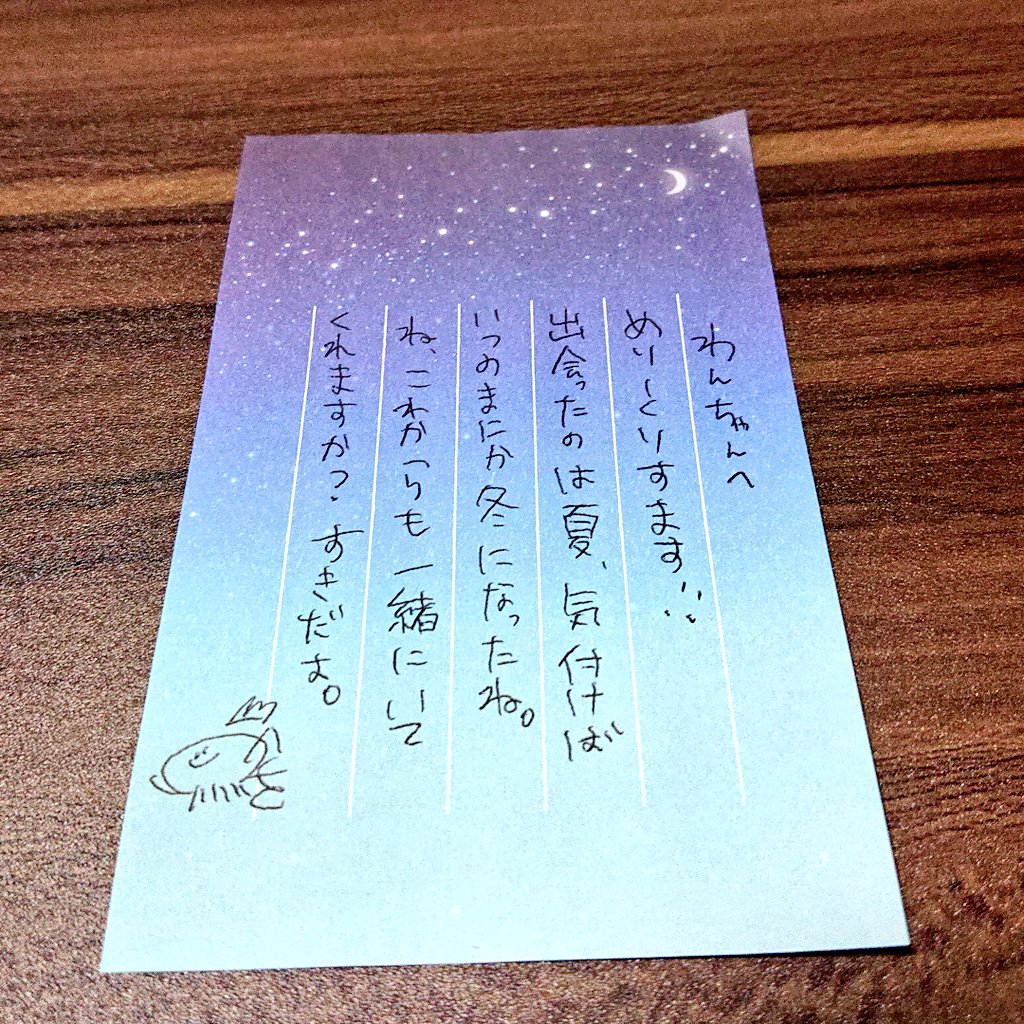 わんちゃんへ
めりーくりすます!!
出会ったのは夏、気付けば
いつのまにか冬になったね。
ね、これからも一緒にいて
くれますか?すきだよ。